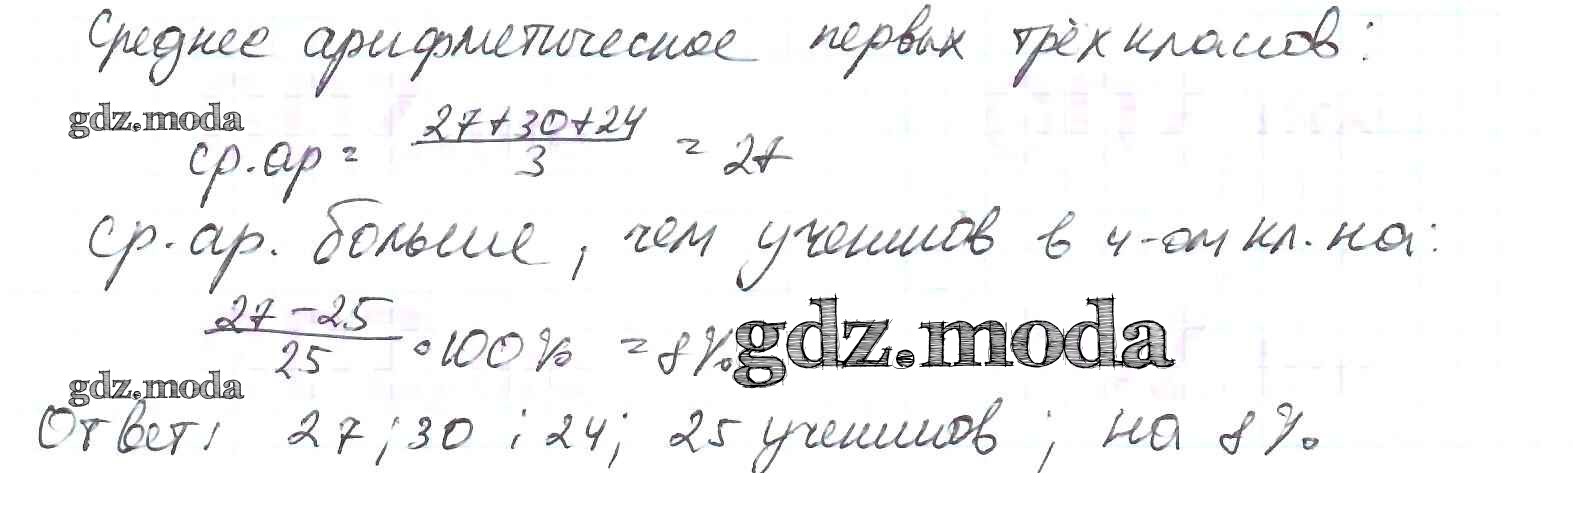 Среднее арифметическое первых трёх классов:
gdz.moda
ср.ар = (27+30+24)/3 = 27
ср.ар. больше, чем учеников в 4-ом кл. на:
(27-25)/25 • 100% = 8% gdz.moda
gdz.moda
Ответ: 27; 30; 24; 25 учеников; на 8%